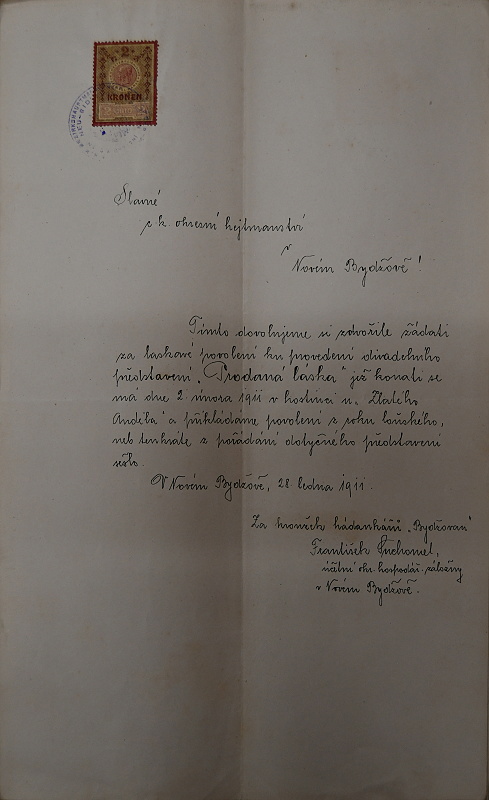 2
KRONEN
Slavné
c. k. okresní hejtmanství
v
Novém Bydžově!
Tímto dovolujeme si zdvořile žádati
za laskavé povolení ku provedení divadelního
představení „Prodaná láska" jež konati se
má dne 2. února 1911 v hostinci u „Zlatého
Anděla" a přikládáme povolení z roku loňského,
neb tenkráte z pořádání dotyčného představení
sešlo.
V Novém Bydžově, 28. ledna 1911.
Za kroužek hádankářů „Bydžovan"
František Suchomel,
účetní okr. hospodář. záložny
v Novém Bydžově.